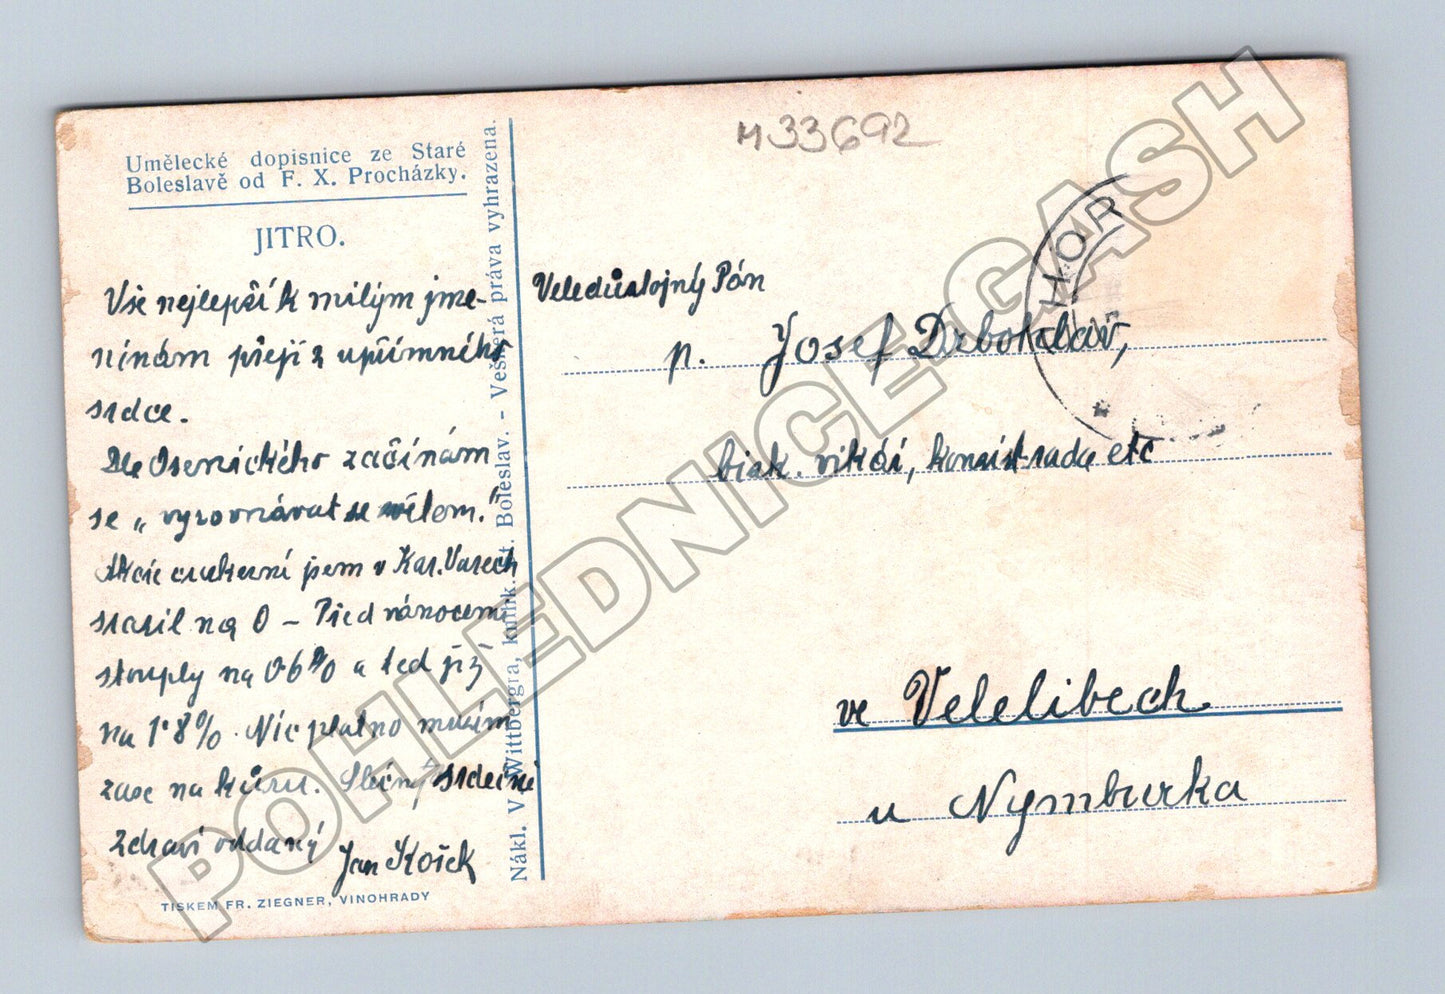 Umělecké dopisnice ze Staré
Boleslavě od F. X. Procházky.
JITRO.
Vše nejlepší k milým jme-
ninám přeji z upřímného
srdce.
Dle Osenického začínám
se „vyrovnávat se světem."
Akcie cukerní jsem v Kar. Varech
srazil na 0 – Před vánocemi
stouply na 0·6% a teď již
na 1·8%. Nic platno musím
zase na kůru. Srdečně
zdraví oddaný
Jan Kořek
TISKEM FR. ZIEGNER, VINOHRADY
Nákl. V. Wittbergra, knihk. St. Boleslav. - Veškerá práva vyhrazena.
H33692
HOR
Veledůstojný Pán
p. Josef Drbohlav,
bisk. vikář, konsist. rada etc
ve Velelibech
u Nymburka
POHLEDNICE GASH